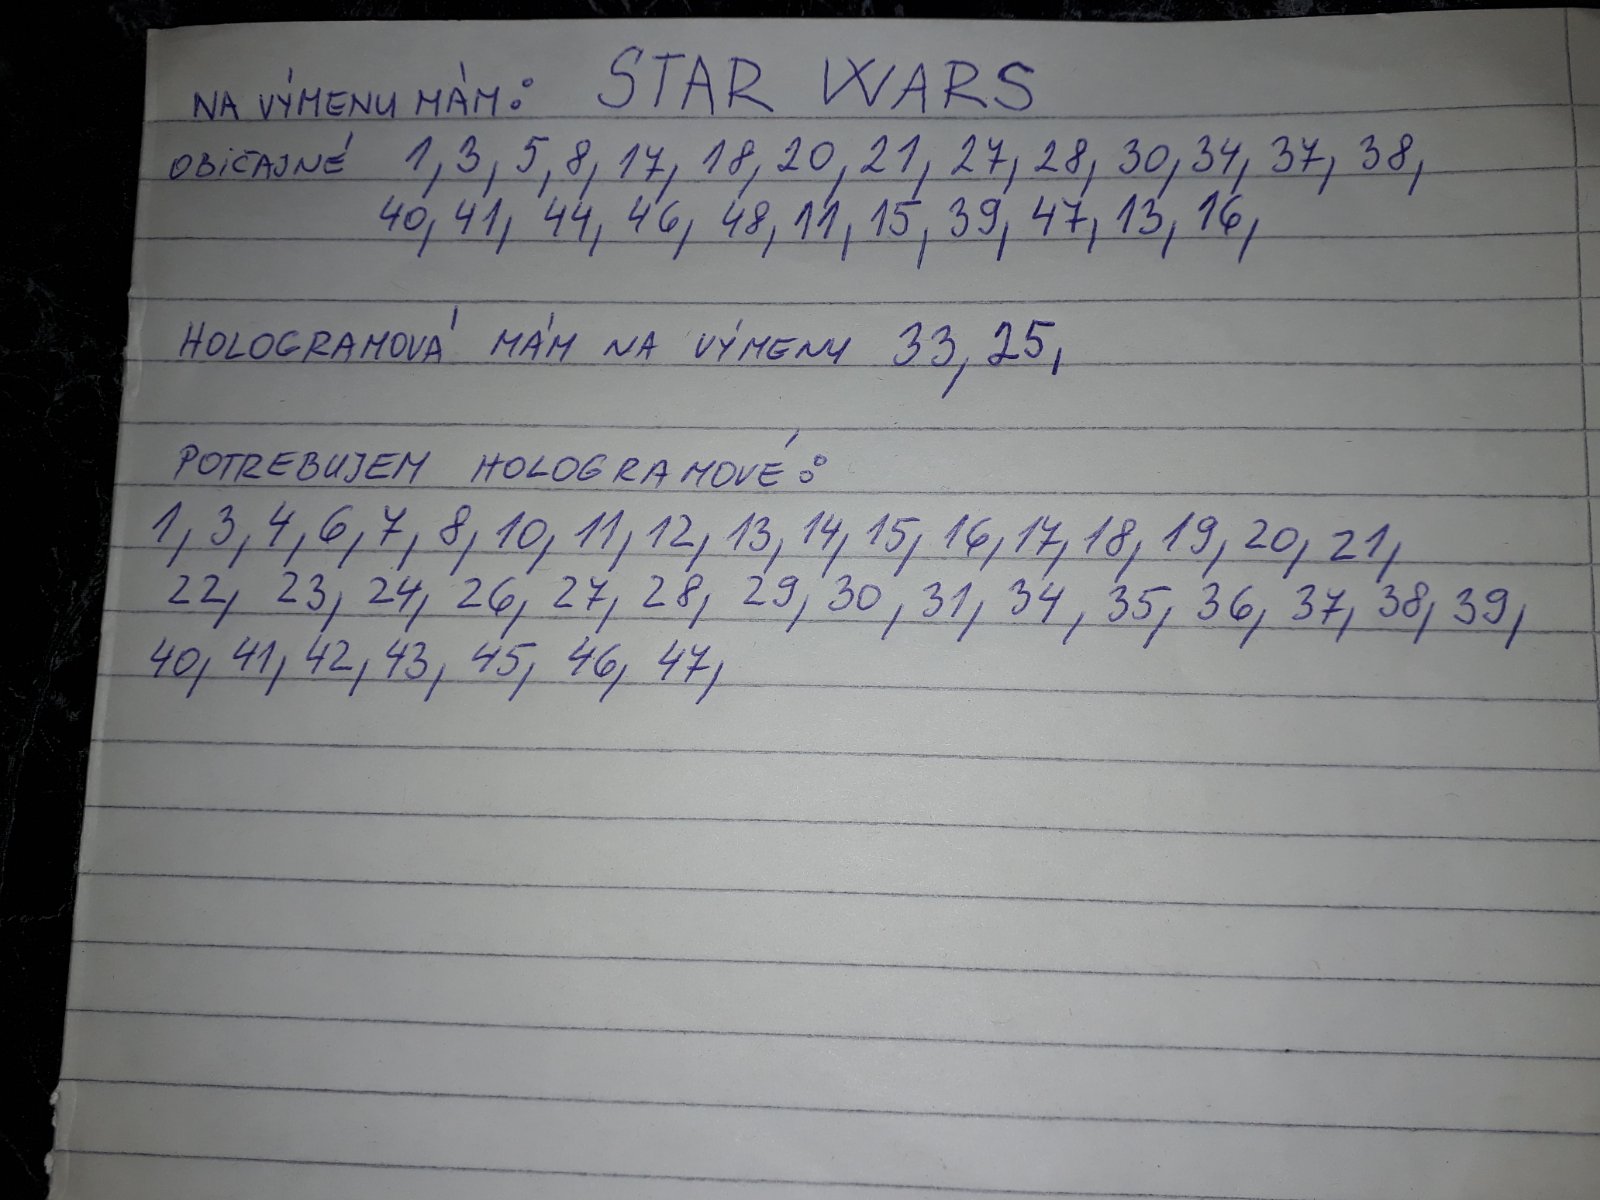 NA VÝMENU MÁM: STAR WARS
OBIČAJNÉ 1, 3, 5, 8, 17, 18, 20, 21, 27, 28, 30, 34, 37, 38,
40, 41, 44, 46, 48, 11, 15, 39, 47, 13, 16,
HOLOGRAMOVÁ MÁM NA VÝMENU 33, 25,
POTREBUJEM HOLOGRAMOVÉ:
1, 3, 4, 6, 7, 8, 10, 11, 12, 13, 14, 15, 16, 17, 18, 19, 20, 21,
22, 23, 24, 26, 27, 28, 29, 30, 31, 34, 35, 36, 37, 38, 39,
40, 41, 42, 43, 45, 46, 47,